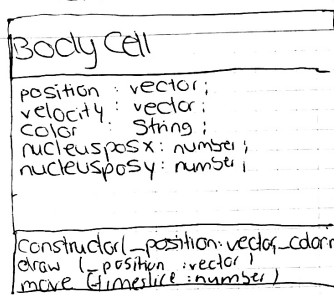 Body Cell
position : vector;
velocity : vector;
color : String;
nucleusposx: number;
nucleusposy: number;
constructor(_position: vector,
draw (_position : vector)
move (timeslice : number)